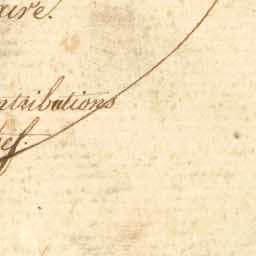 aire.
ntributions